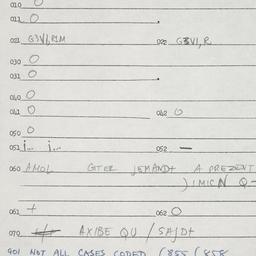 010 O
011 O .
021 G3V1, R1M 022 G3V1, R
030 O
031 O .
040 O
041 O 042 O
050 O
051 i... i... 052 —
060 AMOL GTER JEMAND+ A PREZENT
) IMICN Q-
061 + 062 O
070 AXIBE QU / SAJD+
901 NOT ALL CASES CODED (855 (858